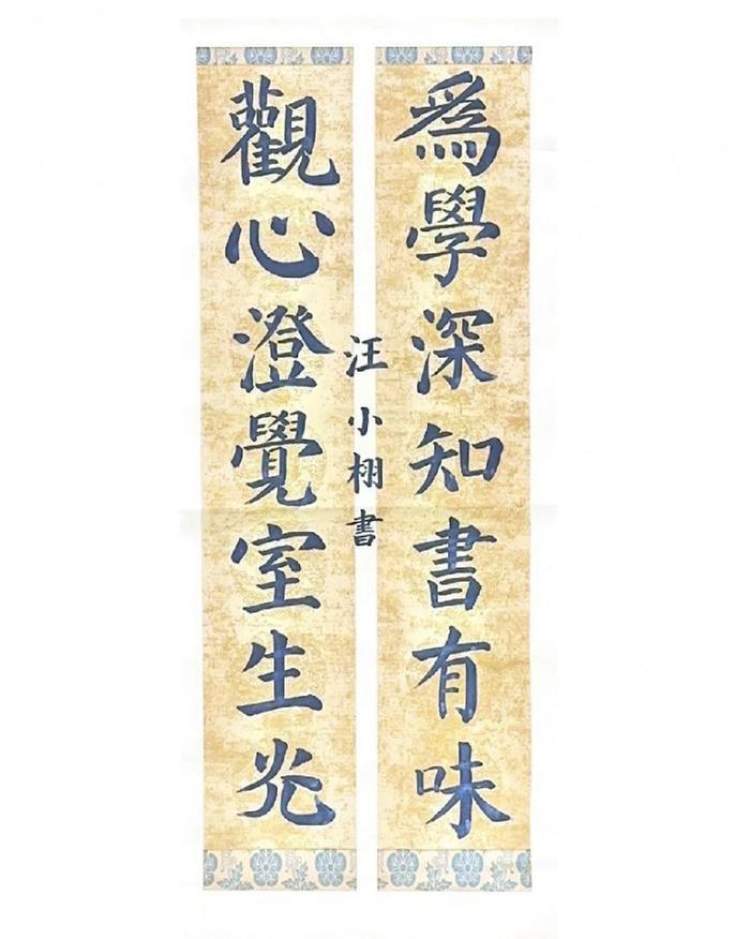 為學深知書有味
觀心澄覺室生光
汪小栩書